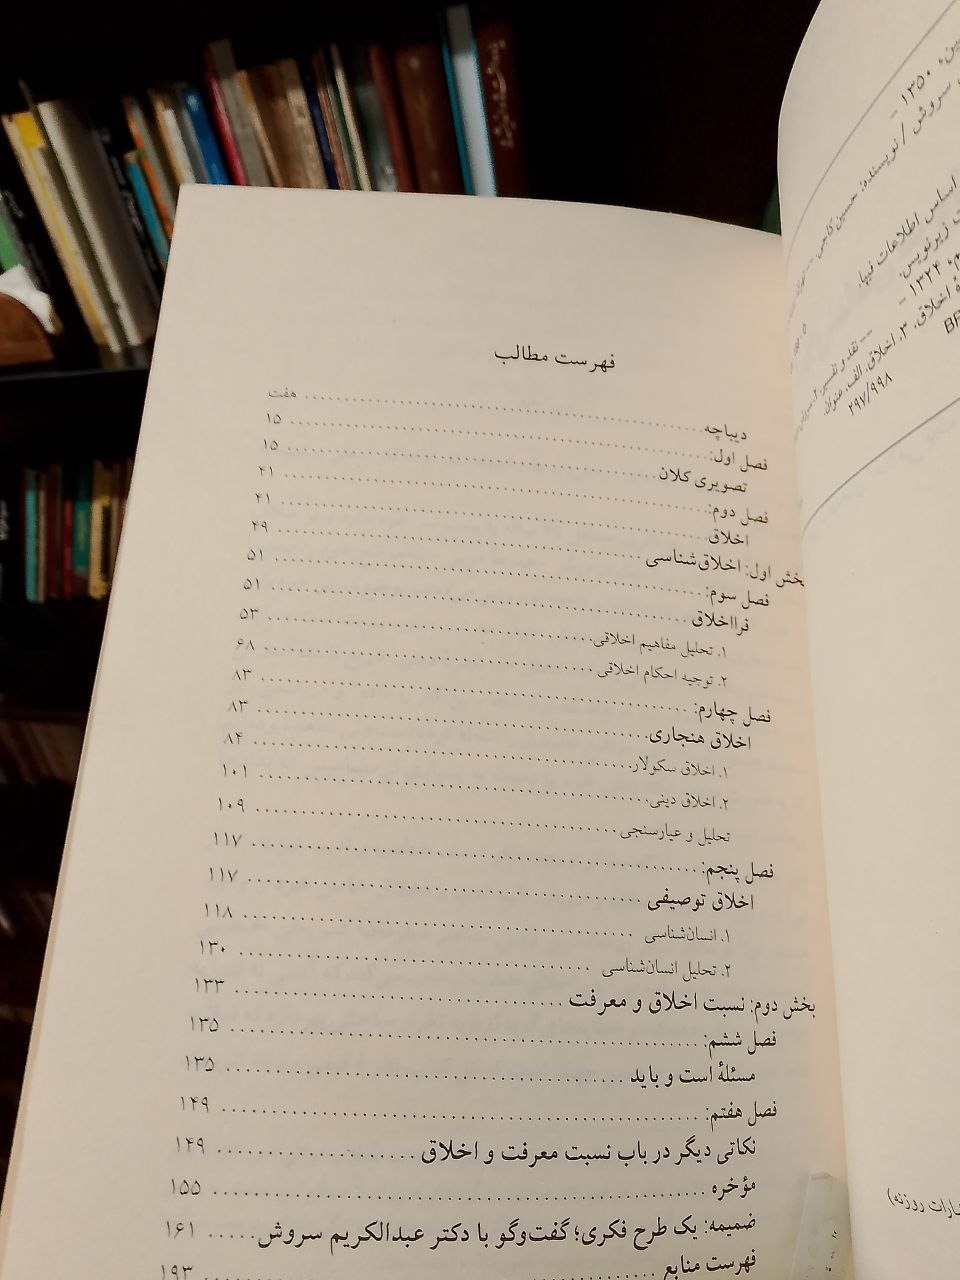 فهرست مطالب
دیباچه ........ هفت
فصل اول: ........ ۱۵
تصویری کلان ........ ۱۵
فصل دوم: ........ ۴۱
اخلاق ........ ۴۱
بخش اول: اخلاق‌شناسی ........ ۴۹
فصل سوم: ........ ۵۱
فرااخلاق ........ ۵۱
۱. تحلیل مفاهیم اخلاقی ........ ۵۳
۲. توجیه احکام اخلاقی ........ ۶۸
فصل چهارم: ........ ۸۳
اخلاق هنجاری ........ ۸۳
۱. اخلاق سکولار ........ ۸۴
۲. اخلاق دینی ........ ۱۰۱
تحلیل و عیارسنجی ........ ۱۰۹
فصل پنجم: ........ ۱۱۷
اخلاق توصیفی ........ ۱۱۷
۱. انسان‌شناسی ........ ۱۱۸
۲. تحلیل انسان‌شناسی ........ ۱۳۰
بخش دوم: نسبت اخلاق و معرفت ........ ۱۳۳
فصل ششم: ........ ۱۳۵
مسئلهٔ است و باید ........ ۱۳۵
فصل هفتم: ........ ۱۴۹
نکاتی دیگر در باب نسبت معرفت و اخلاق ........ ۱۴۹
مؤخره ........ ۱۵۵
ضمیمه: یک طرح فکری؛ گفت‌وگو با دکتر عبدالکریم سروش ........ ۱۶۱
فهرست منابع ........ ۱۹۳
۱۳۵۰ -
سروش / نویسنده: حسین کاجی. --
اساس اطلاعات فیپا.
زیرنویس.
۱۳۲۴ -
-- نقد و تفسیر.
اخلاق. ۳. اخلاق. الف. عنوان.
۲۹۷/۹۹۸
روزنه)